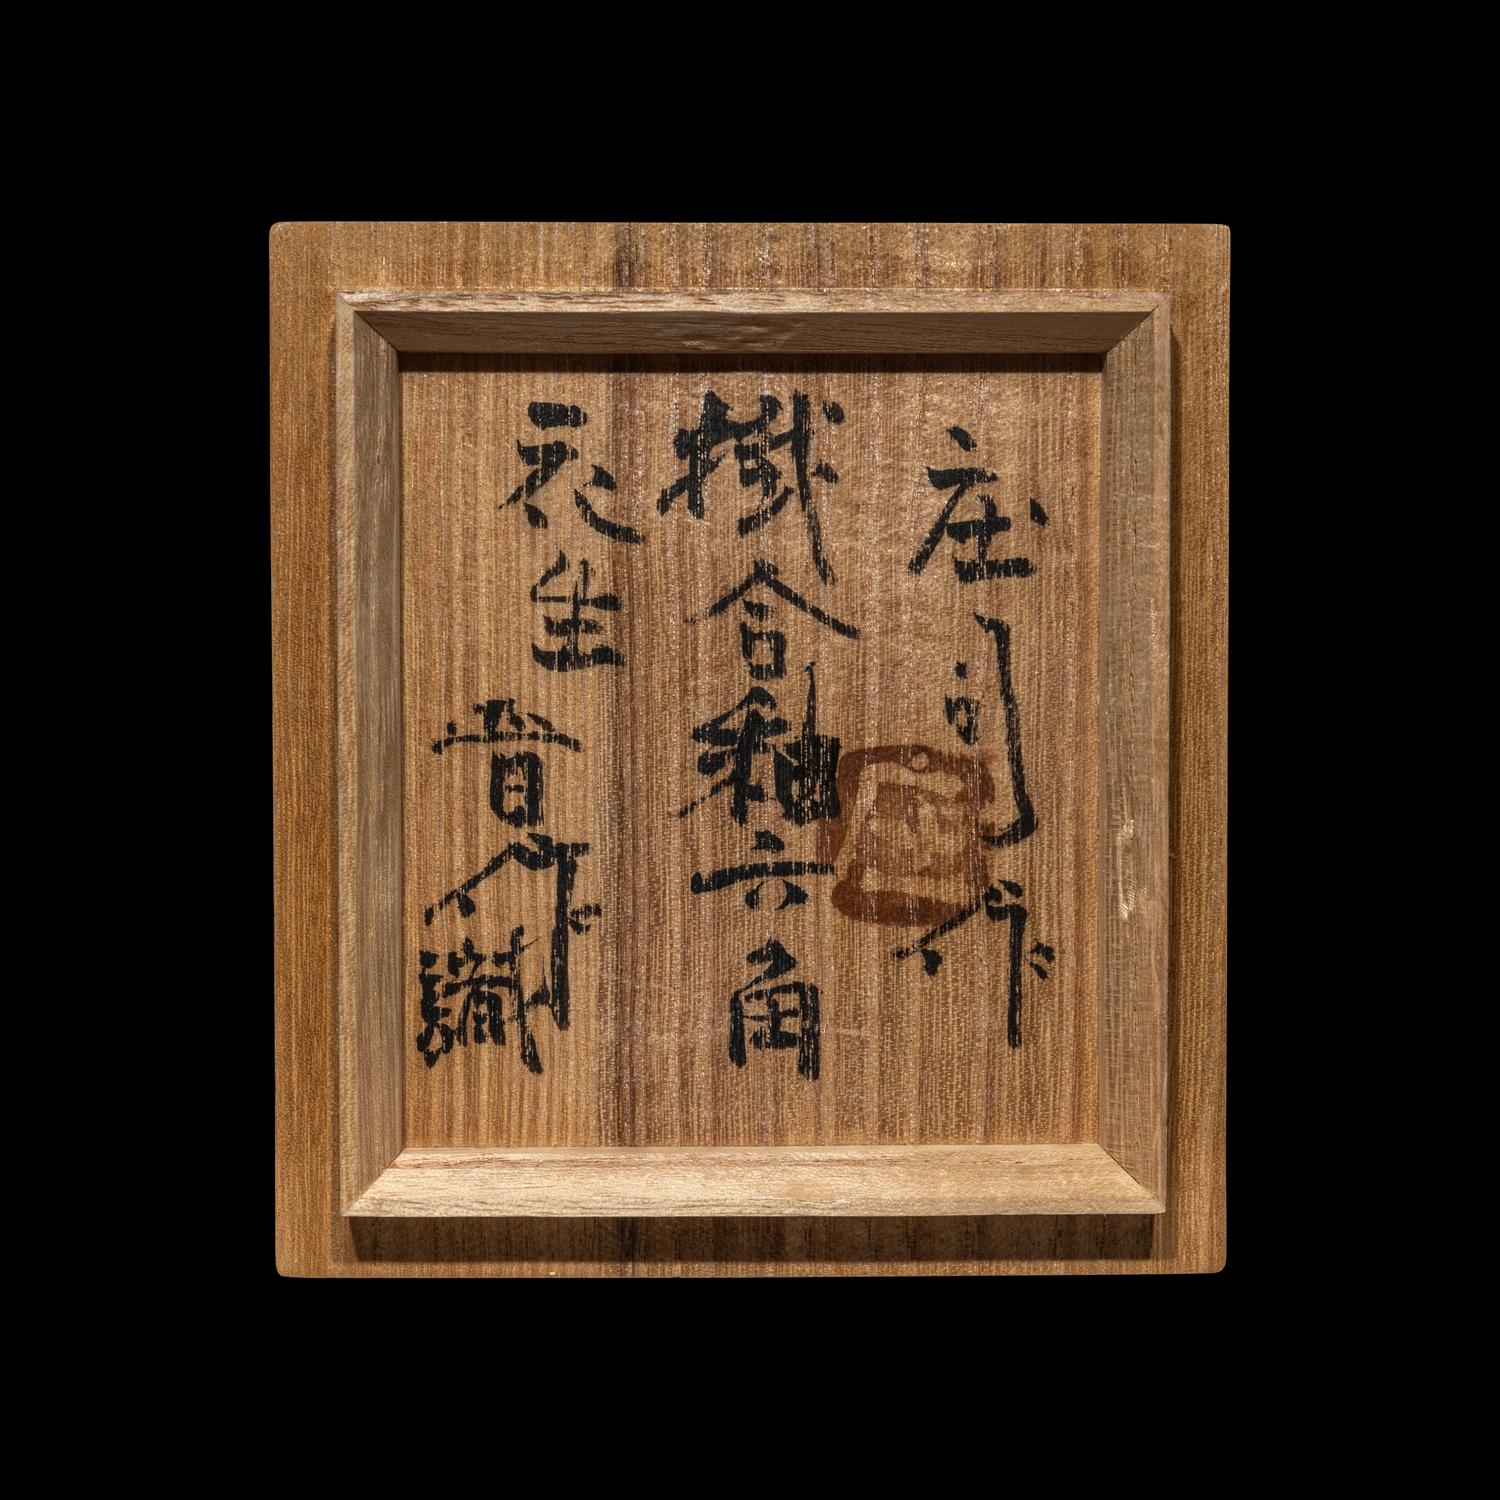 庄司作
掛合釉六角
花生
晋作識